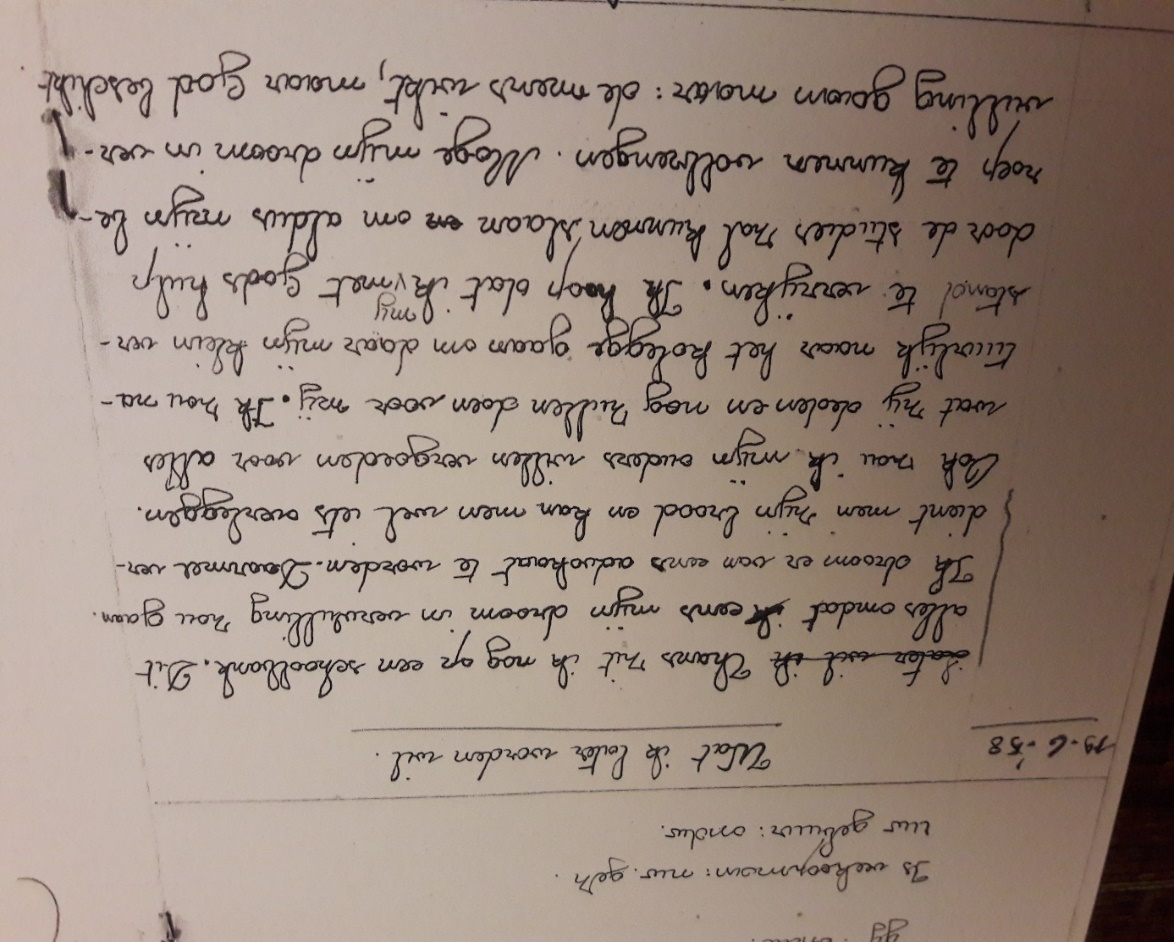 gg
Is veekoopman: mv. geh.
uur gebuur: onder.
19-6-'58
Wat ik later worden wil.
later wil ik Thans zit ik nog op een schoolbank. Dit
alles omdat ik eens mijn droom in vervulling zou gaan.
Ik droom er van eens advokaat te worden. Daarmee ver-
dient men zijn brood en kan men wel iets overleggen.
Ook zou ik mijn ouders willen vergoeden voor alles
wat zij deden en nog zullen doen voor mij. Ik zou na-
tuurlijk naar het kolegge gaan om daar mijn klein ver-
stand te verrijken. Ik hoop dat ik my met Gods hulp
door de studies zal kunnen slaan en om aldus mijn be-
roep te kunnen volbrengen. Moge mijn droom in ver-
vulling gaan maar: de mens wikt, maar God beschikt